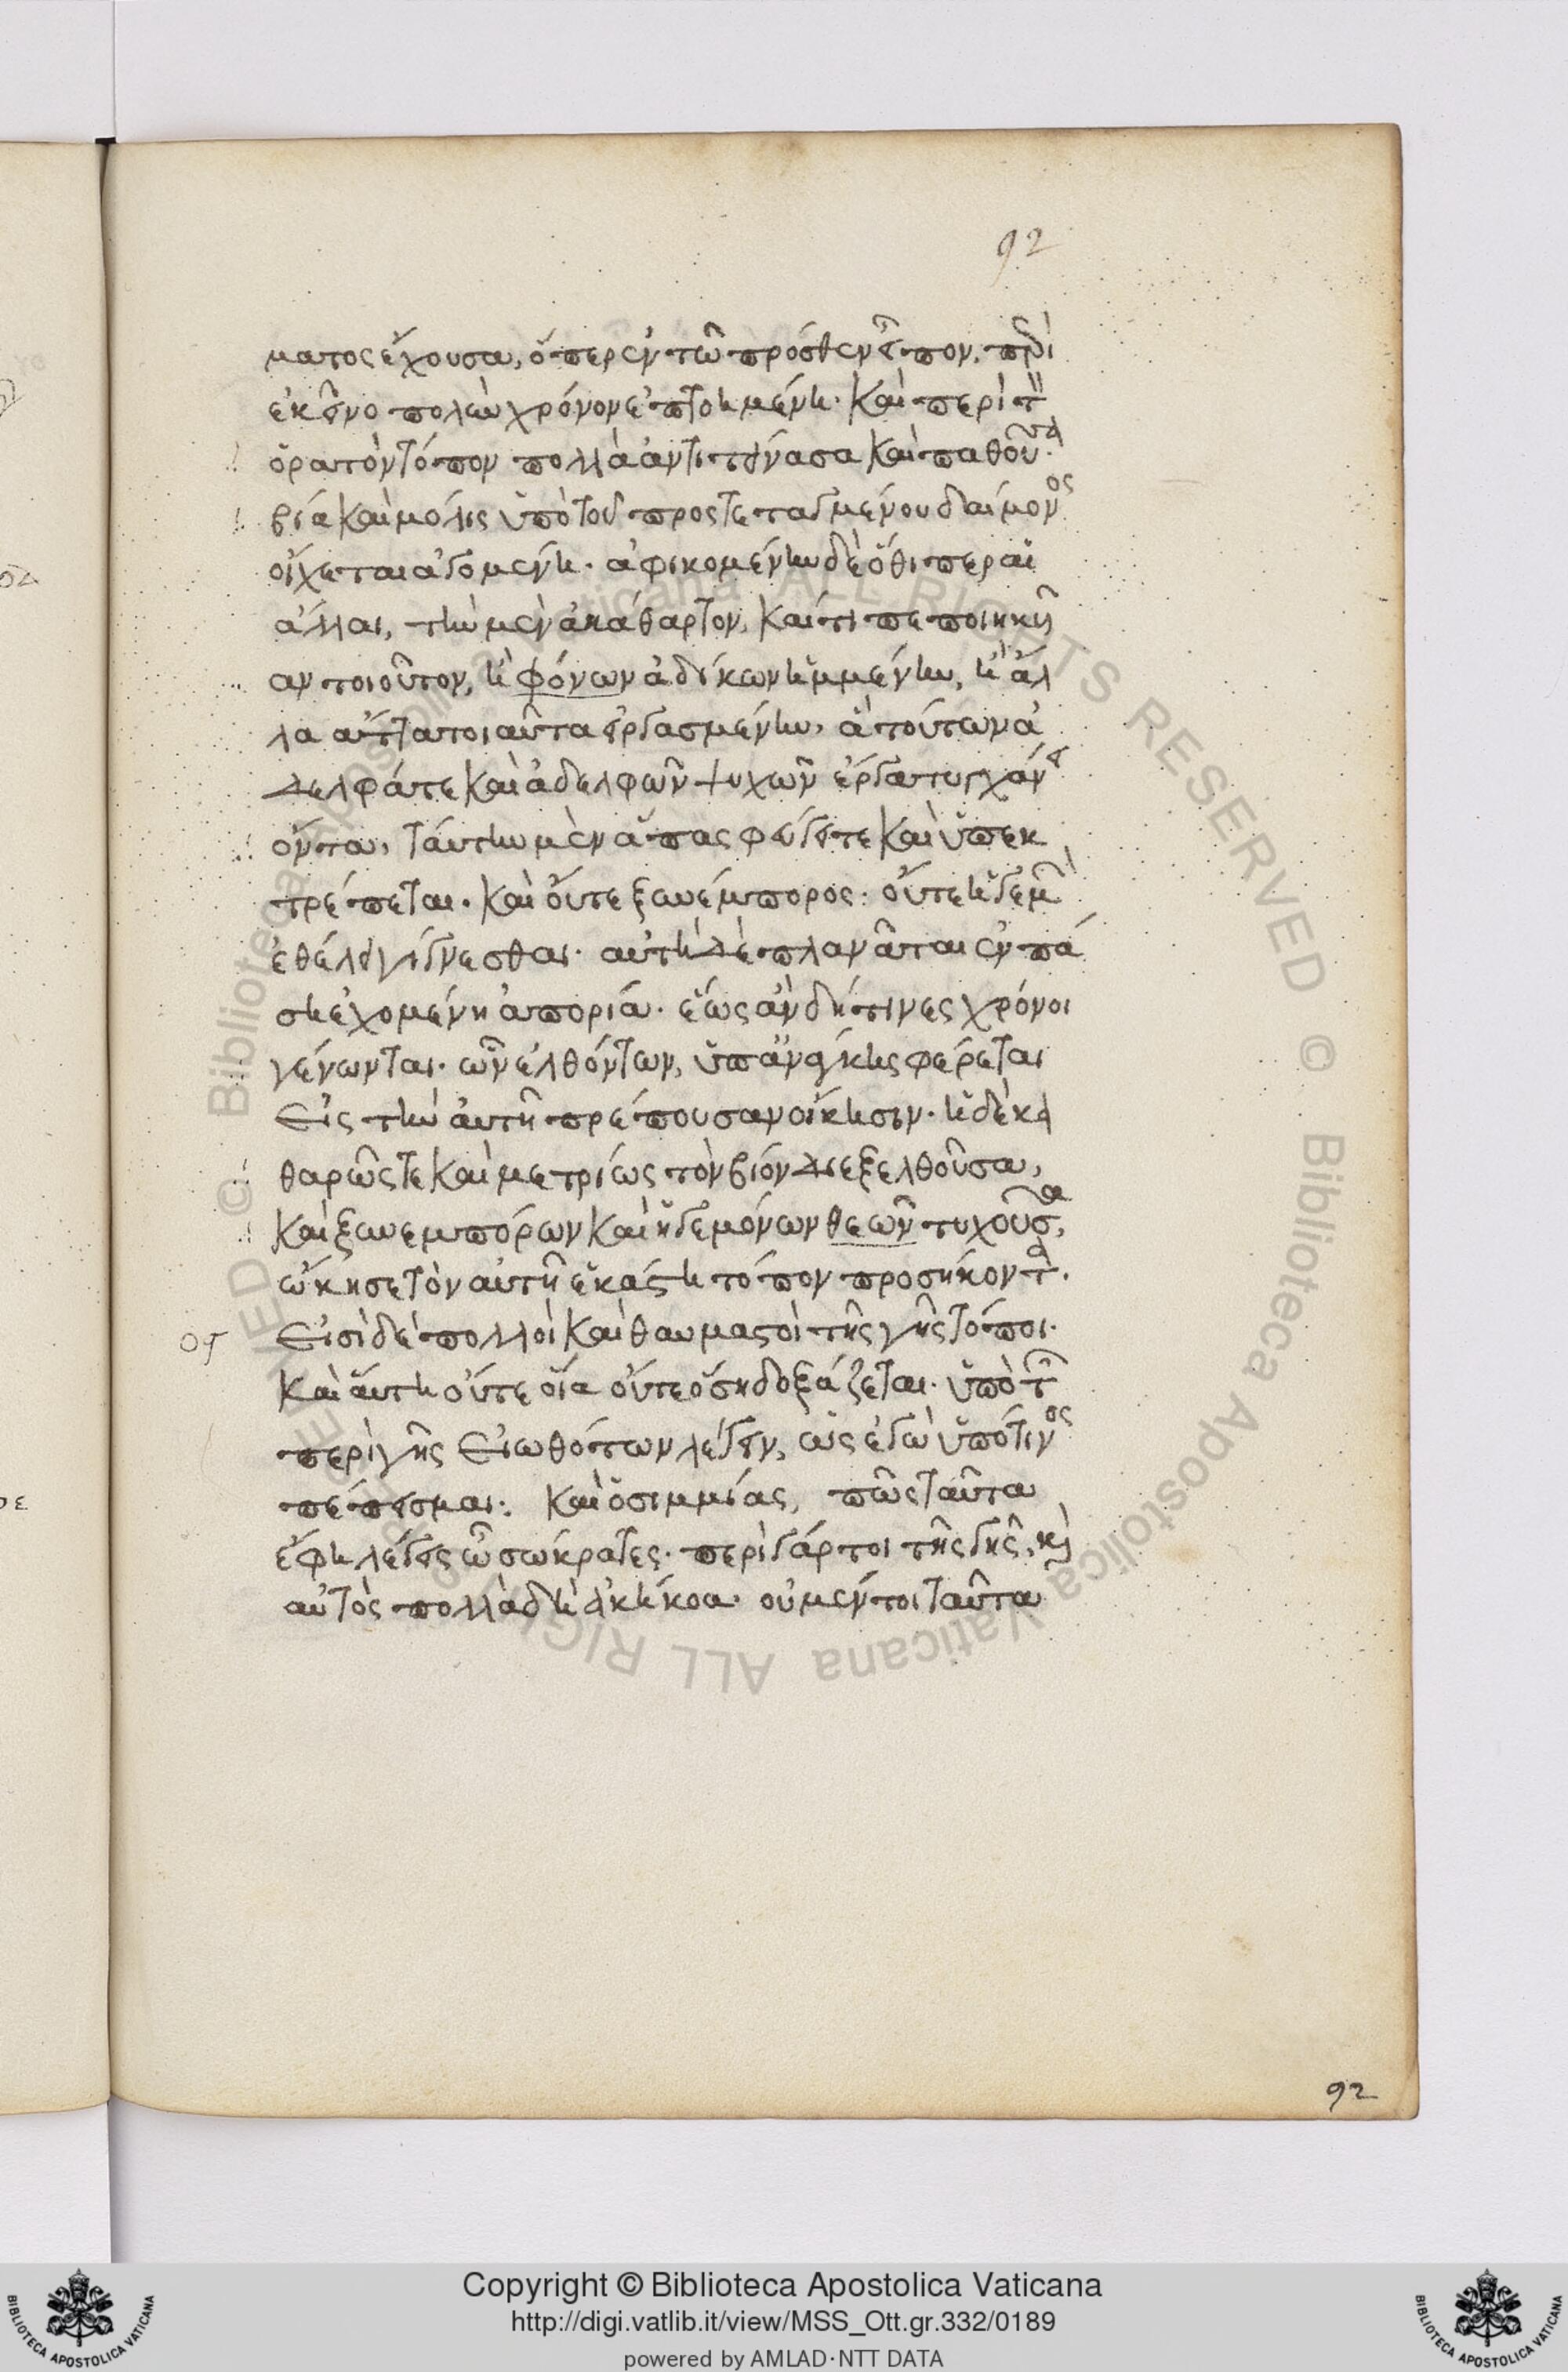 92
ματος ἔχουσα, ὅπερ ἐν τῷ πρόσθεν εἶπον, περὶ
ἐκεῖνο πολὺν χρόνον ἐπτοημένη. καὶ περὶ τ
ὁρατὸν τόπον πολλὰ ἀντιτείνασα καὶ παθοῦ
βίᾳ καὶ μόλις ὑπὸ τοῦ προστεταγμένου δαίμονος
οἴχεται ἀγομένη. ἀφικομένην δὲ ὅθι περ αἱ
ἄλλαι, τὴν μὲν ἀκάθαρτον, καί τι πεποιηκυῖ
αν τοιοῦτον, ἢ φόνων ἀδίκων ἡμμένην, ἢ ἄλ
λα ἄττα τοιαῦτα εἰργασμένην, ἃ τούτων ἀ
δελφά τε καὶ ἀδελφῶν ψυχῶν ἔργα τυγχάνει
ὄντα, ταύτην μὲν ἅπας φεύγει τε καὶ ὑπεκ
τρέπεται. καὶ οὔτε ξυνέμπορος. οὔτε ἡγεμὼν
ἐθέλει γίγνεσθαι. αὐτὴ δὲ πλανᾶται ἐν πά
σῃ ἐχομένη ἀπορίᾳ. ἕως ἂν δή τινες χρόνοι
γένωνται. ὧν ἐλθόντων, ὑπ' ἀνάγκης φέρεται
εἰς τὴν αὐτῇ πρέπουσαν οἴκησιν. ἡ δὲ κα
θαρῶς τε καὶ μετρίως τὸν βίον διεξελθοῦσα,
καὶ ξυνεμπόρων καὶ ἡγεμόνων θεῶν τυχοῦσα,
ᾤκησε τὸν αὐτῇ ἑκάστη τόπον προσήκοντα.
ος Εἰσὶ δὲ πολλοὶ καὶ θαυμαστοὶ τῆς γῆς τόποι.
καὶ αὕτη οὔτε οἵα οὔτε ὅση δοξάζεται. ὑπὸ τῶν
περὶ γῆς εἰωθότων λέγειν, ὡς ἐγὼ ὑπό τινος
πέπεισμαι. καὶ ὁ σιμμίας, πῶς ταῦτα
ἔφη λέγεις ὦ σώκρατες. περὶ γάρ τοι τῆς γῆς, καὶ
αὐτὸς πολλὰ δὴ ἀκήκοα. οὐ μέντοι ταῦτα
92
© Biblioteca Apostolica Vaticana ALL RIGHTS RESERVED © Biblioteca Apostolica Vaticana ALL RIGHTS RESERVED
BIBLIOTECA APOSTOLICA VATICANA
Copyright © Biblioteca Apostolica Vaticana
http://digi.vatlib.it/view/MSS_Ott.gr.332/0189
powered by AMLAD·NTT DATA
BIBLIOTECA APOSTOLICA VATICANA